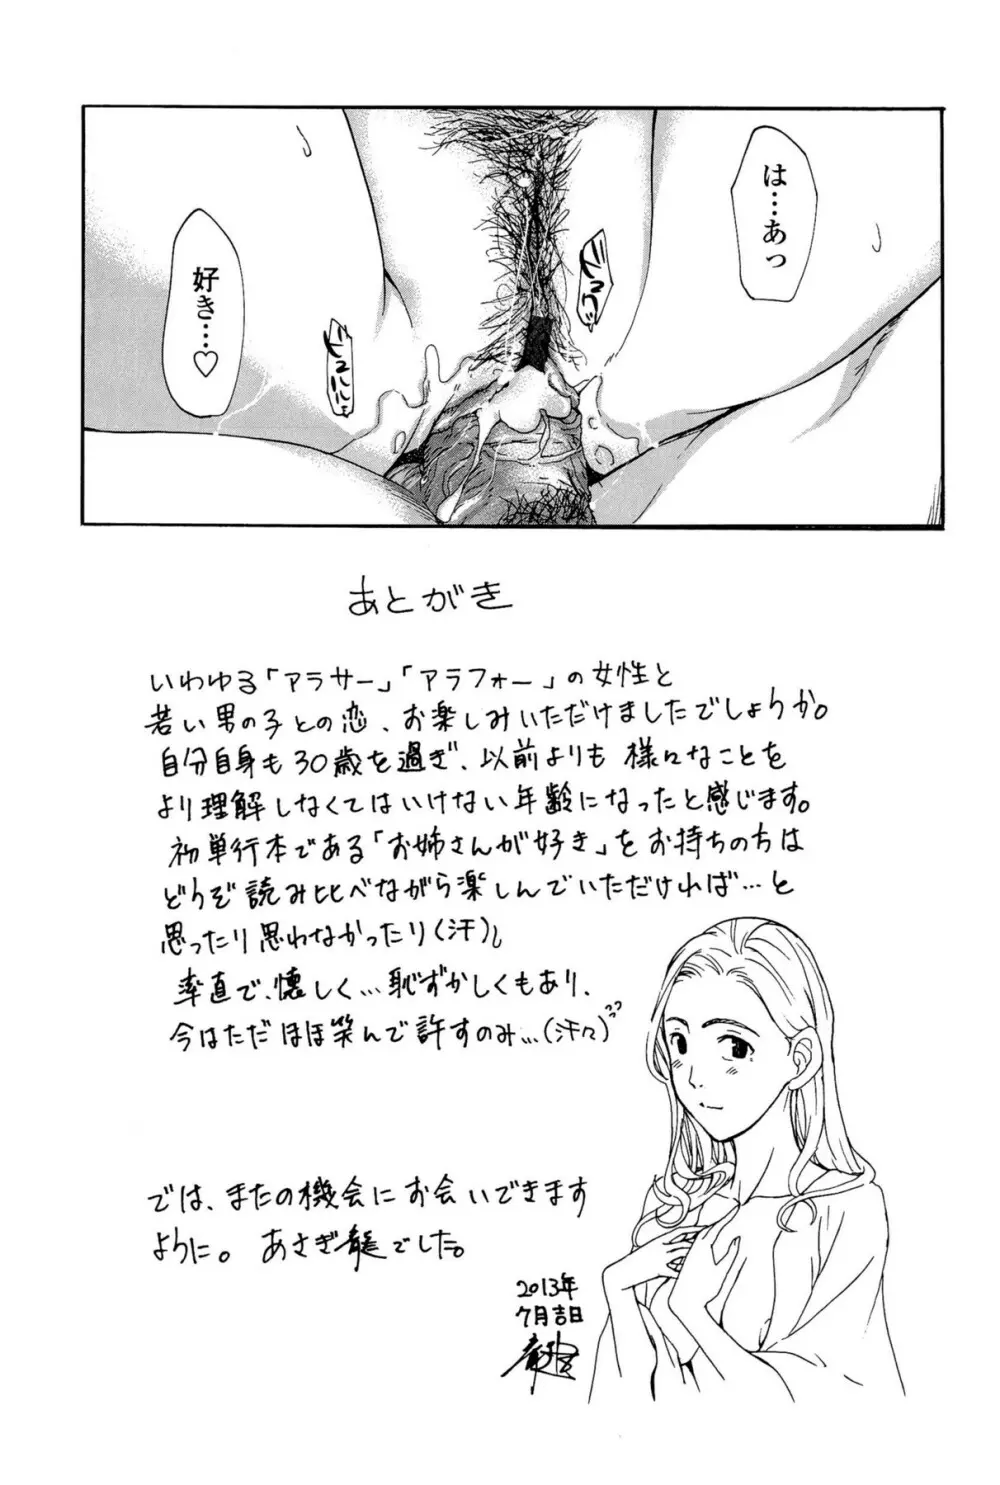 は…あっ
ドュッ
ドュルルッ
好き…♡
あとがき
いわゆる「アラサー」「アラフォー」の女性と
若い男の子との恋、お楽しみいただけましたでしょうか。
自分自身も30歳を過ぎ、以前よりも様々なことを
より理解しなくてはいけない年齢になったと感じます。
初単行本である「お姉さんが好き」をお持ちの方は
どうぞ読み比べながら楽しんでいただければ…と
思ったり思わなかったり(汗)。
率直で、懐しく…恥ずかしくもあり、
今はただほほ笑んで許すのみ…(汗々)
では、またの機会にお会いできます
ように。あさぎ龍でした。
2013年
7月吉日